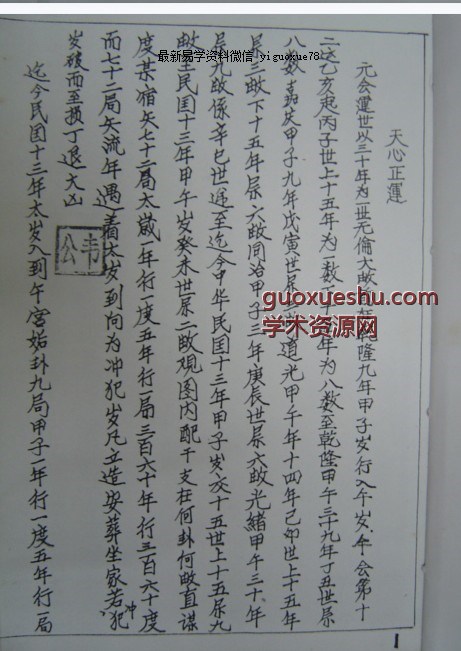 最新易学资料微信 yiguoxue78
天心正運
元会運世以三十年為一世无倫大畝 乾隆九年甲子岁行入午岁午会第十
二运乙亥起丙子世上十五年為一数下十五年為八数至乾隆甲午三十九年丁丑世屬
八数嘉庆甲子九年戊寅世屬 道光甲午年十四年己卯世上十五年
屬三畝下十五年屬六畝同治甲子三年庚辰世屬六畝光緒甲午三十年
屬九畝係辛巳世運至迄今中华民国十三年甲子岁交十五世上十五屬九
畝至民国十三年甲午岁癸未世屬二畝观图内配干支在何卦何畝直谋
度某宿矢七十二局太歲一年行一度五年行一局三百六十年行三百六十度
而七十二局矢流年遇着太岁到向为冲犯岁凡立造安葬坐家若犯
冲
岁破而至损丁退大凶
韦公
迄今民国十三年太岁入到午宫姤卦九局甲子一年行一度五年行一局
guoxueshu.com
学术资源网
1